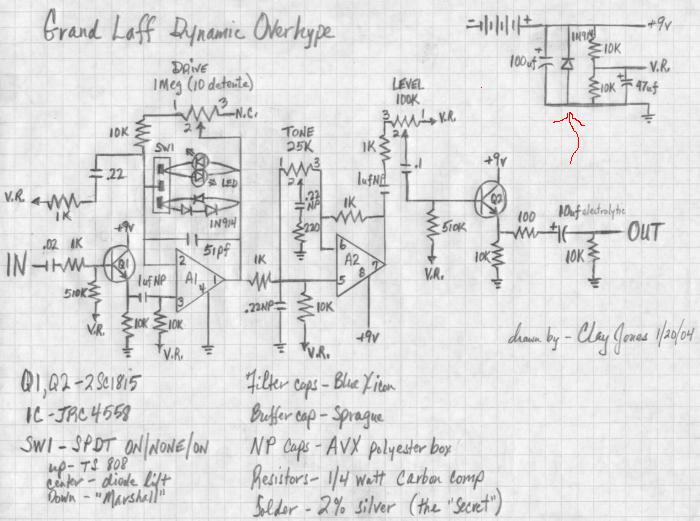 Grand Laff Dynamic Overhype
+9v
1N914
100uf
10K
V.R.
10K
47uf
DRIVE
1Meg (10 detents)
1
3
N.C.
2
10K
SW1
LED
1N914
.22
V.R.
1K
51pf
+9v
IN
.02
1K
Q1
510K
V.R.
1ufNP
10K
10K
V.R.
2
3
A1
4
1
TONE
25K
1
3
2
.22
NP
220
1K
1K
.22NP
10K
V.R.
6
5
A2
8
7
+9v
LEVEL
100K
3
1
V.R.
2
1K
1ufNP
.1
510K
V.R.
+9v
Q2
10K
100
10uf electrolytic
10K
OUT
drawn by - Clay Jones 1/20/04
Q1, Q2 - 2SC1815
IC - JRC4558
SW1 - SPDT ON/NONE/ON
up - TS 808
center - diode lift
Down - "Marshall"
Filter caps - Blue Xicon
Buffer cap - Sprague
NP caps - AVX polyester box
Resistors - 1/4 watt Carbon comp
Solder - 2% silver (the "secret")